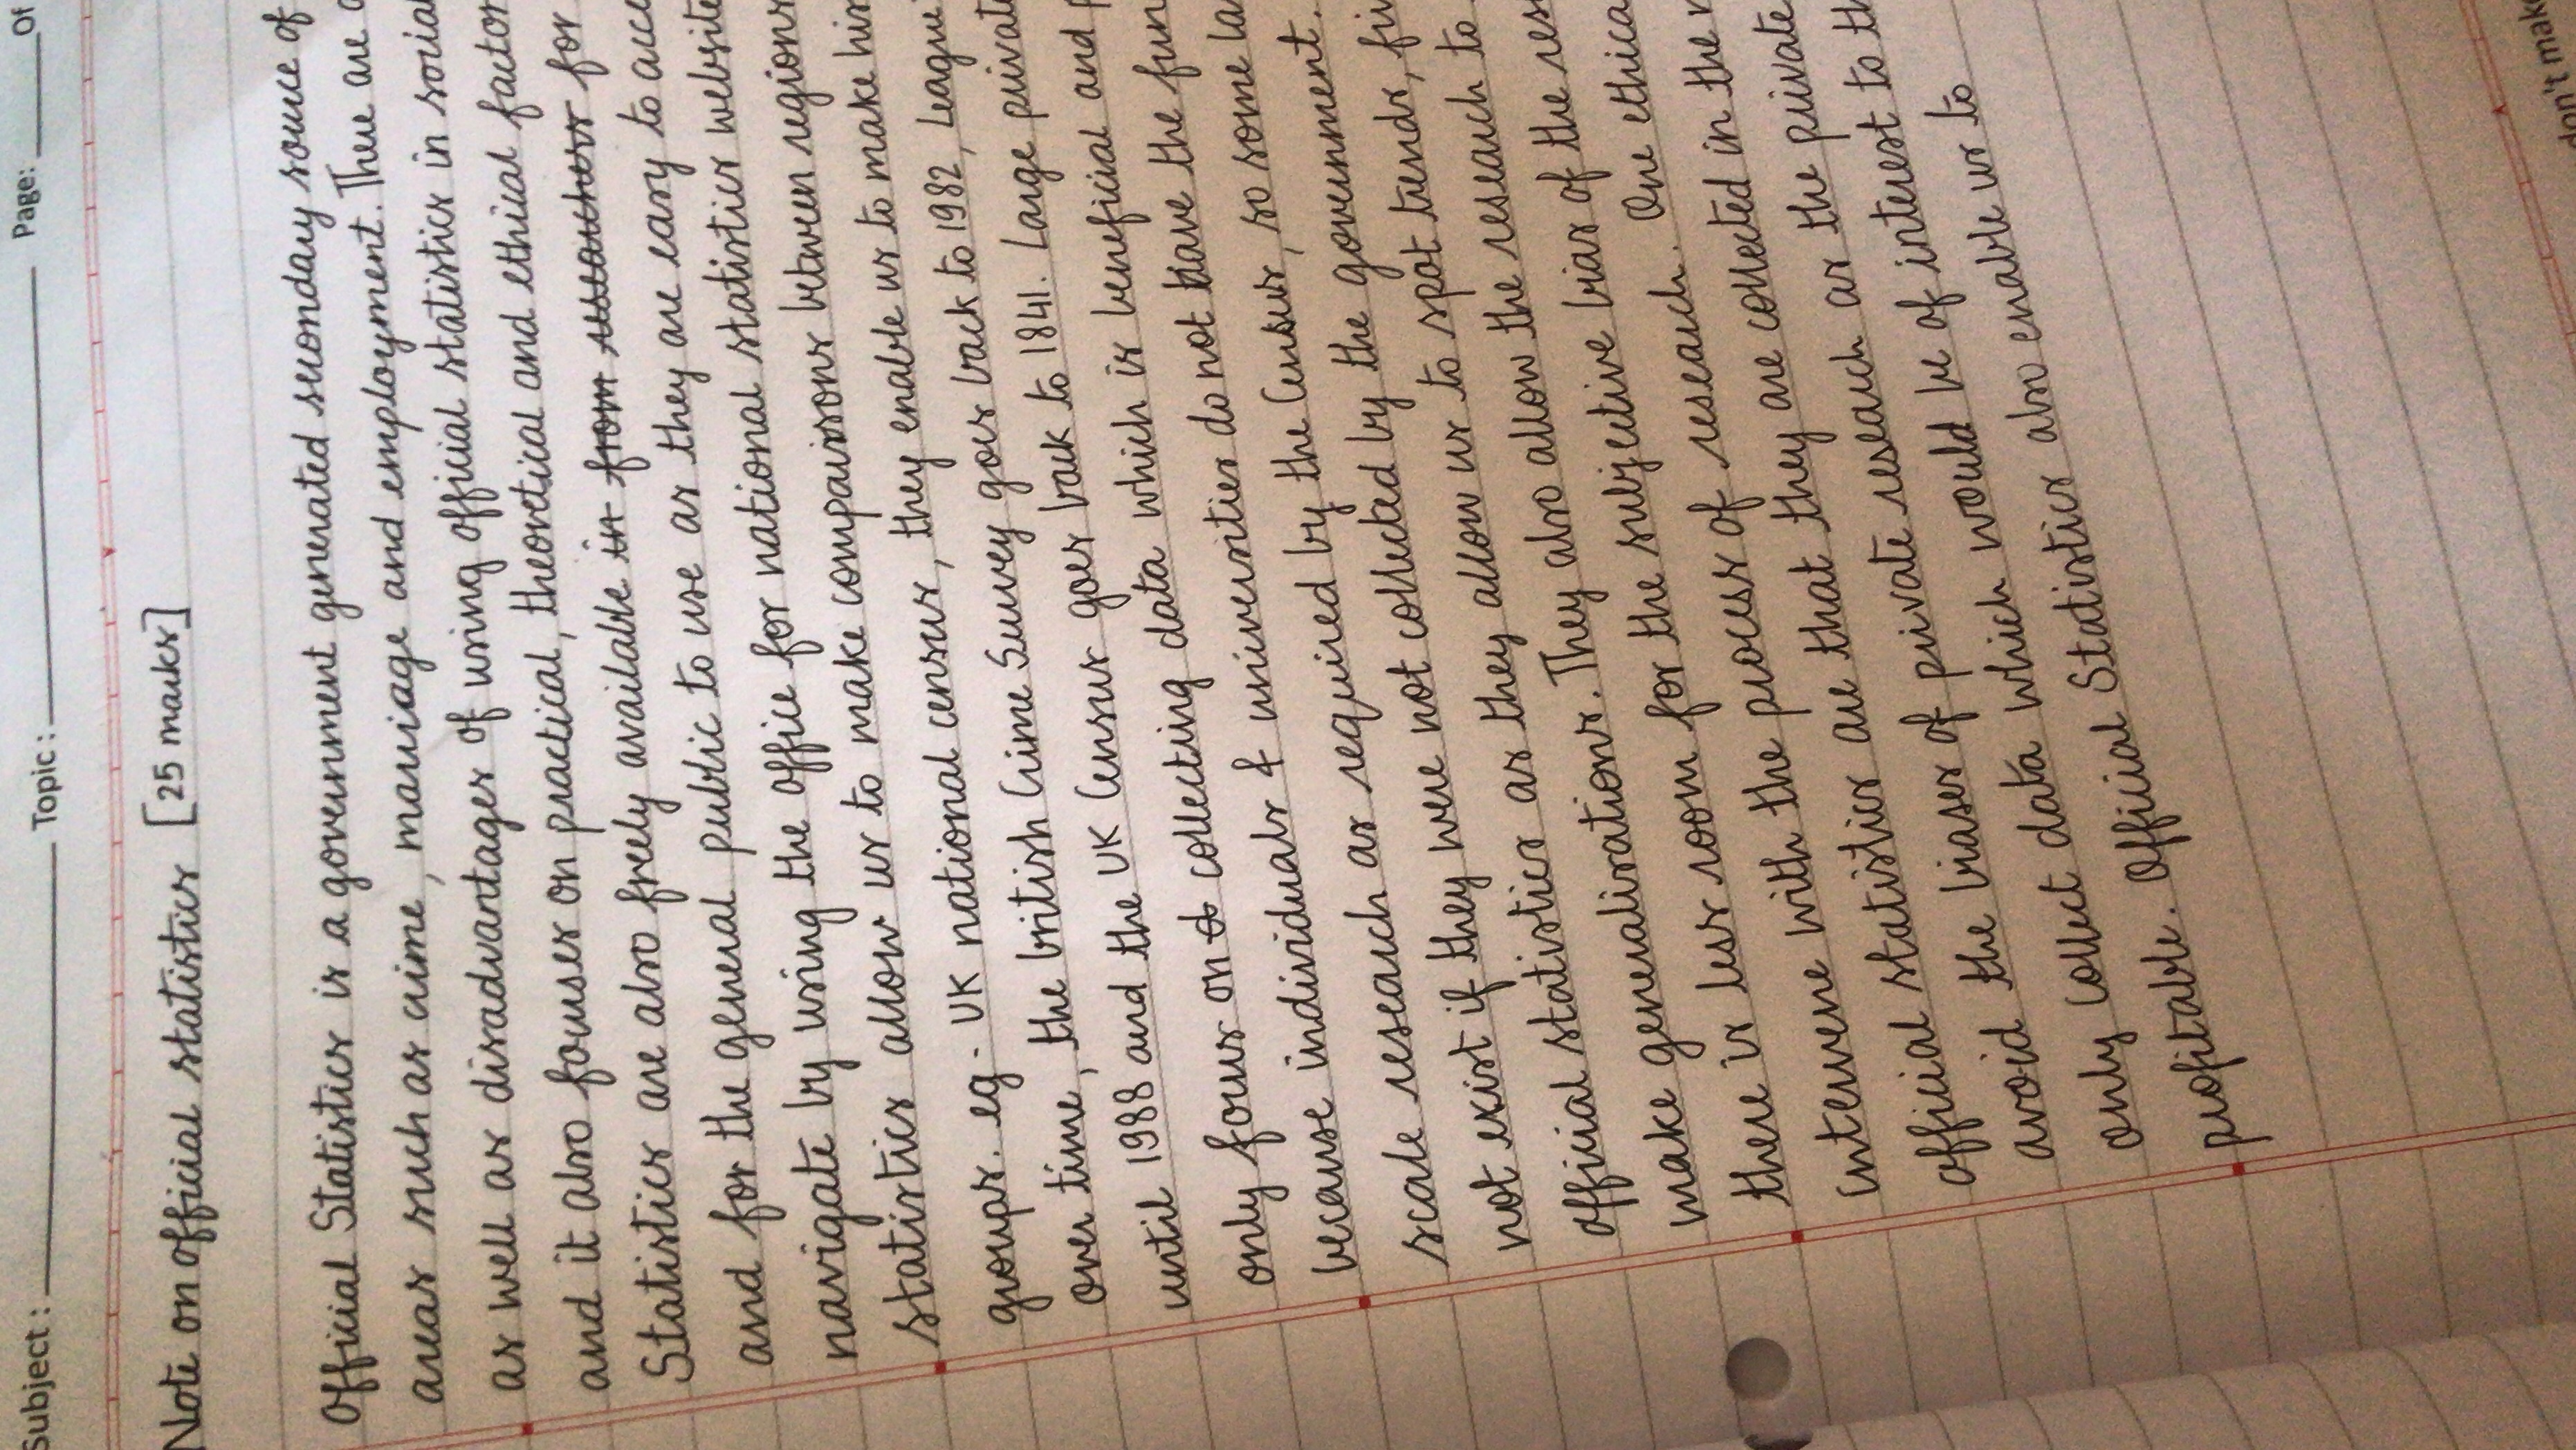 Subject: Topic: Page: Of
Note on official statistics [25 marks]
Official Statistics is a government generated secondary source of
areas such as crime, marriage and employment. There are a
as well as disadvantages of using official statistics in social
and it also focuses on practical, theoretical and ethical factor
Statistics are also freely available in from researchers for
and for the general public to use as they are easy to acce
navigate by using the office for national statistics website
statistics allow us to make comparisons between regions
groups. eg. UK national census, they enable us to make his
over time, the british Crime Survey goes back to 1982, League
until 1988 and the UK Census goes back to 1841. Large private
only focus on to collecting data which is beneficial and p
because individuals & universities do not have the fun
scale research as required by the Census, so some la
not exist if they were not collected by the government.
official statistics as they allow us to spot trends, fi
make generalisations. They also allow the research to
there is less room for the subjective bias of the res
intervene with the process of research. One ethica
official statistics are that they are collected in the
avoid the biases of private research as the private
only collect data which would be of interest to th
profitable. Official Statistics also enable us to
don't mak